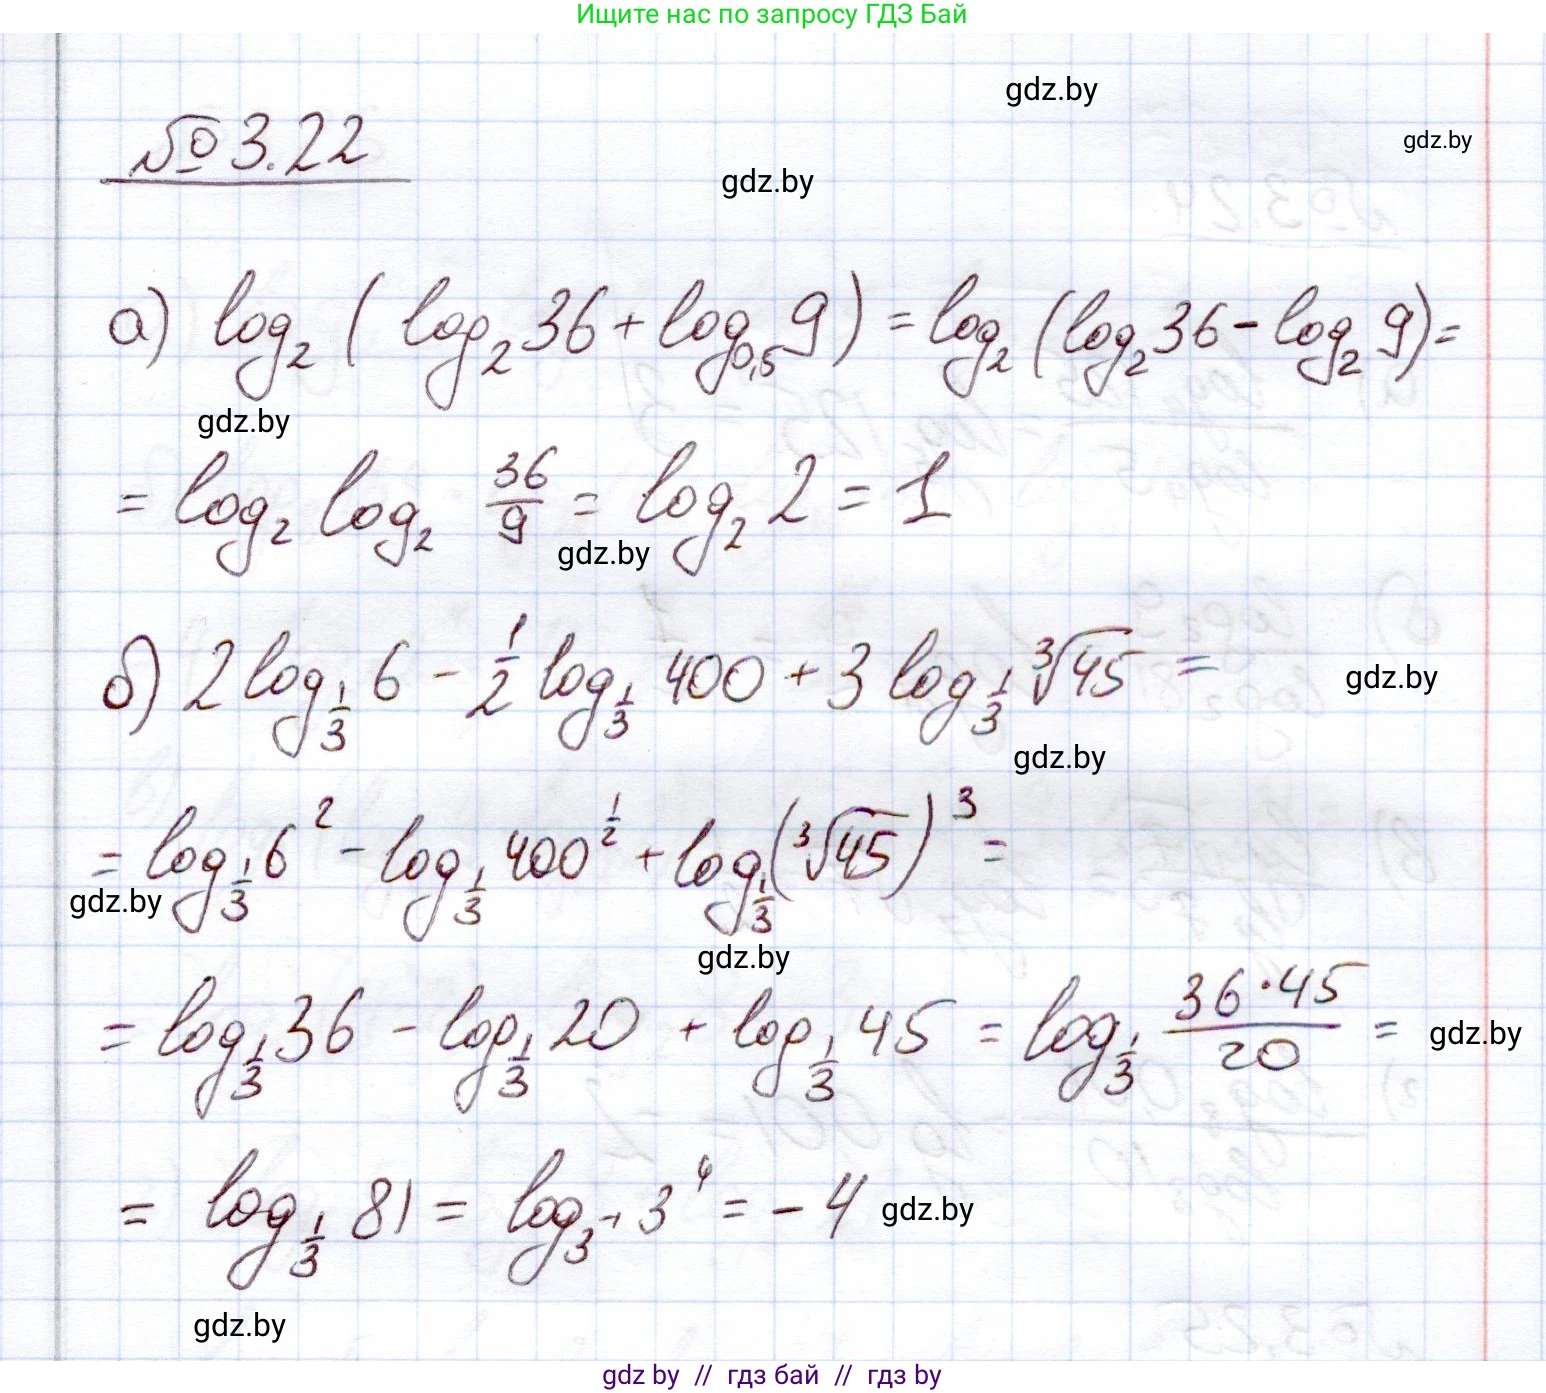 Ищите нас по запросу ГДЗ Бай
gdz.by
№ 3.22
gdz.by
gdz.by
а) log₂ ( log₂ 36 + log₀,₅ 9 ) = log₂ (log₂ 36 - log₂ 9) =
gdz.by
= log₂ log₂ 36/9 = log₂ 2 = 1
gdz.by
б) 2 log_{1/3} 6 - 1/2 log_{1/3} 400 + 3 log_{1/3} ∛45 =
gdz.by
gdz.by
= log_{1/3} 6² - log_{1/3} 400^{1/2} + log_{1/3} (∛45)³ =
gdz.by
gdz.by
= log_{1/3} 36 - log_{1/3} 20 + log_{1/3} 45 = log_{1/3} (36·45)/20 =
gdz.by
= log_{1/3} 81 = log_{3^{-1}} 3⁴ = - 4
gdz.by
gdz.by
gdz by // гдз бай // гдз by